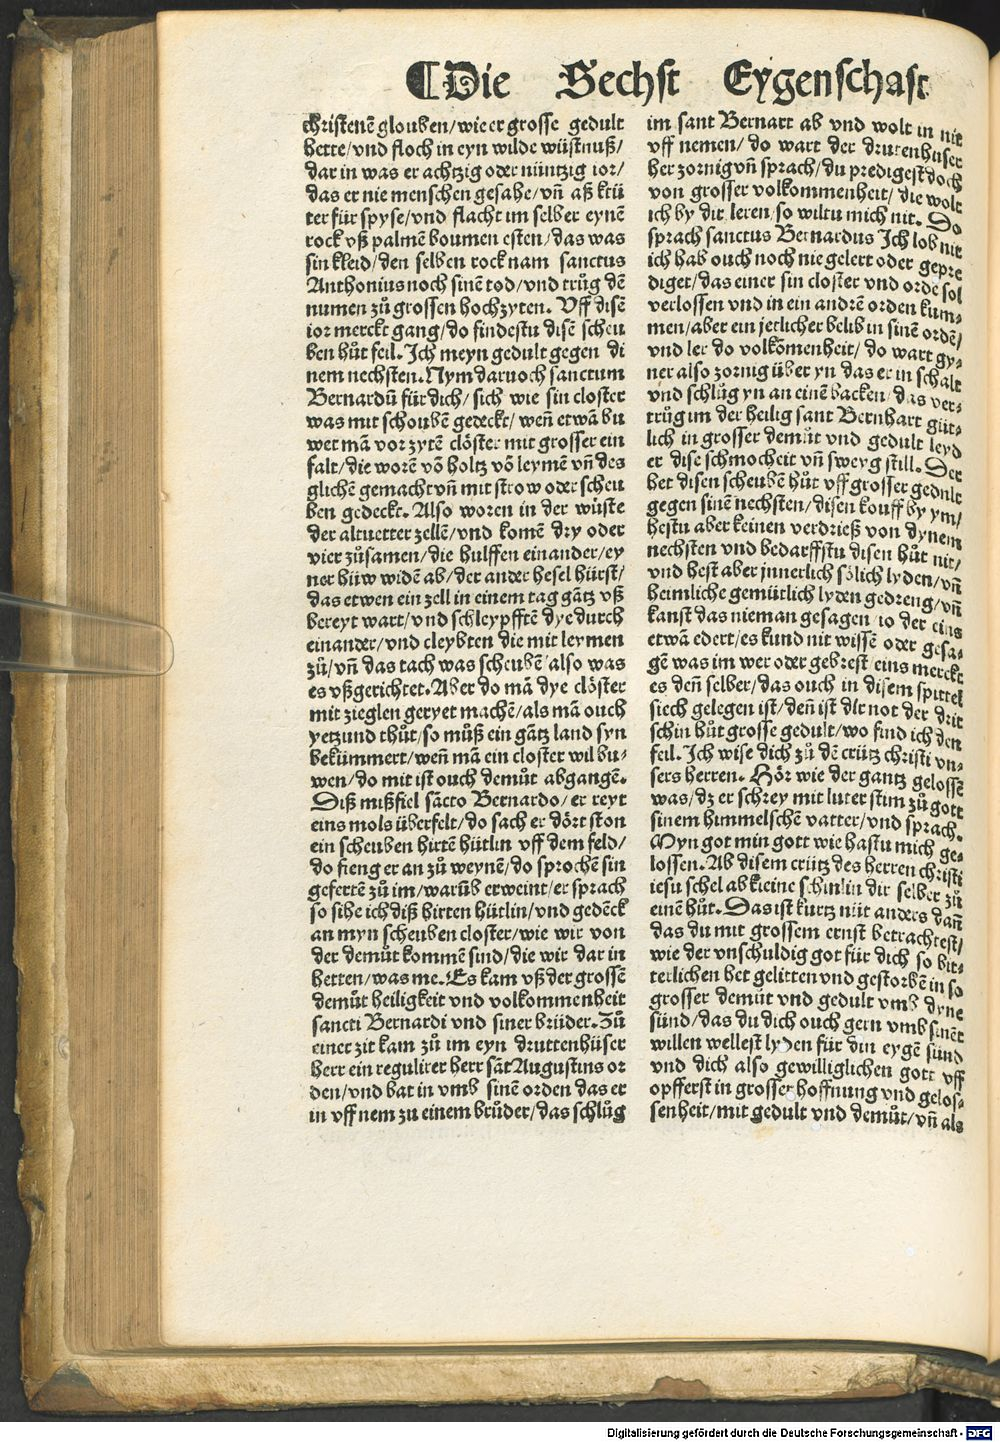 ¶Die Sechst Eygenschaft
christenē glouben/wie er grosse gedult
hette/vnd floch in eyn wilde wüstnuß/
dar in was er achtzig oder nüntzig ior/
das er nie menschen gesahe/vñ aß krü
ter für spyse/vnd flacht im selber eynē
rock vß palmē boumen esten/das was
sin kleid/den selben rock nam sanctus
Anthonius noch sinē tod/vnd trůg dē
numen zů grossen hochzyten. Vff disē
ior merckt gang/do findestu disē scheu
ben hůt feil. Ich meyn gedult gegen di
nem nechsten. Nym darnoch sanctum
Bernardū für dich/sich wie sin closter
was mit schoubē gedeckt/weñ etwā bu
wet mā vor zytē clöster mit grosser ein
falt/die worē vō holtz vō leymē vñ des
glichē gemacht vñ mit strow oder scheu
ben gedeckt. Also woren in der wüste
der altuetter zellē/vnd komē dry oder
vier zůsamen/die hulffen einander/ey
ner hüw widē ab/der ander hesel hürst/
das etwen ein zell in einem tag gātz vß
bereyt wart/vnd schleypfftē dye durch
einander/vnd cleybten die mit leymen
zů/vñ das tach was scheubē also was
es vßgerichtet. Aber do mā dye clöster
mit zieglen geryet machē/als mā ouch
yetzund thůt/so můß ein gātz land syn
bekümmert/weñ mā ein closter wil bu-
wen/do mit ist ouch demůt abgangē.
Diß mißfiel sācto Bernardo/er reyt
eins mols überfelt/do sach er dört ston
ein scheuben hirtē hütlin vff dem feld/
do fieng er an zů weynē/do sprochē sin
gefertē zů im/warūb er weint/er sprach
so sihe ich diß hirten hütlin/vnd gedēck
an myn scheuben closter/wie wir von
der demůt kommē sind/die wir dar in
hetten/was me. Es kam vß der grossē
demůt heiligkeit vnd volkommenheit
sancti Bernardi vnd siner brüder. Zů
einer zit kam zů im eyn druttenhüser
herr ein regulirer herr sāt Augustins or
den/vnd bat in vmb sinē orden das er
in vff nem zu einem brůder/das schlůg
im sant Bernart ab vnd wolt in nit
vff nemen/do wart der drutenhuser
her zornig vñ sprach/du predigest doch
von grosser volkommenheit/die wolt
ich by dir leren/so wiltu mich nit. Do
sprach sanctus Bernardus Ich lob nit
ich hab ouch noch nie gelert oder gepre
diget/das einer sin closter vnd ordē sol
verlossen vnd in ein andrē orden kum-
men/aber ein jetlicher belib in sinē ordē/
vnd ler do volkōmenheit/do wart gy-
ner also zornig über yn das er in schalt
vnd schlůg yn an einē backen/das ver-
trůg im der heilig sant Bernhart güt-
lich in grosser demůt vnd gedult leyd
er dise schmocheit vñ sweyg still. Der
het disen scheubē hůt vff grosser gedult
gegen sinē nechsten/disen kouff by ym/
hestu aber keinen verdrieß von dynem
nechsten vnd bedarffstu disen hůt nit/
vnd hest aber jnnerlich sölich lyden/vñ
heimliche gemütlich lyden gedreng/vñ
kanst das nieman gesagen/so der eins
etwā edert/es kund nit wissē oder gesa-
gē was im wer oder gebrest/eins merckt
es deñ selber/das ouch in disem spittel
siech gelegen ist/deñ ist dir not der drit
schin hůt grosse gedult/wo find ich den
feil. Ich wise dich zů dē crütz christi vn-
sers herren. Hör wie der gantz gelossē
was/dz er schrey mit luter stim zů gott
sinem himmelschē vatter/vnd sprach.
Myn got min gott wie hastu mich ge-
lossen. Ab disem crütz des herren christi
iesu schel ab kleine schinlin dir selber zů
einē hůt. Das ist kurtz nüt anders dañ
das du mit grossem ernst betrachtest/
wie der vnschuldig got für dich so bit-
terlichen het gelitten vnd gestorbē in so
grosser demüt vnd gedult vmb dyne
sünd/das du dich ouch gern vmb sinēt
willen wellest lyden für din eygē sünd
vnd dich also gewilliglichen gott vff
opfferst in grosser hoffnung vnd gelos-
senheit/mit gedult vnd demůt/vñ als
Digitalisierung gefördert durch die Deutsche Forschungsgemeinschaft - DFG